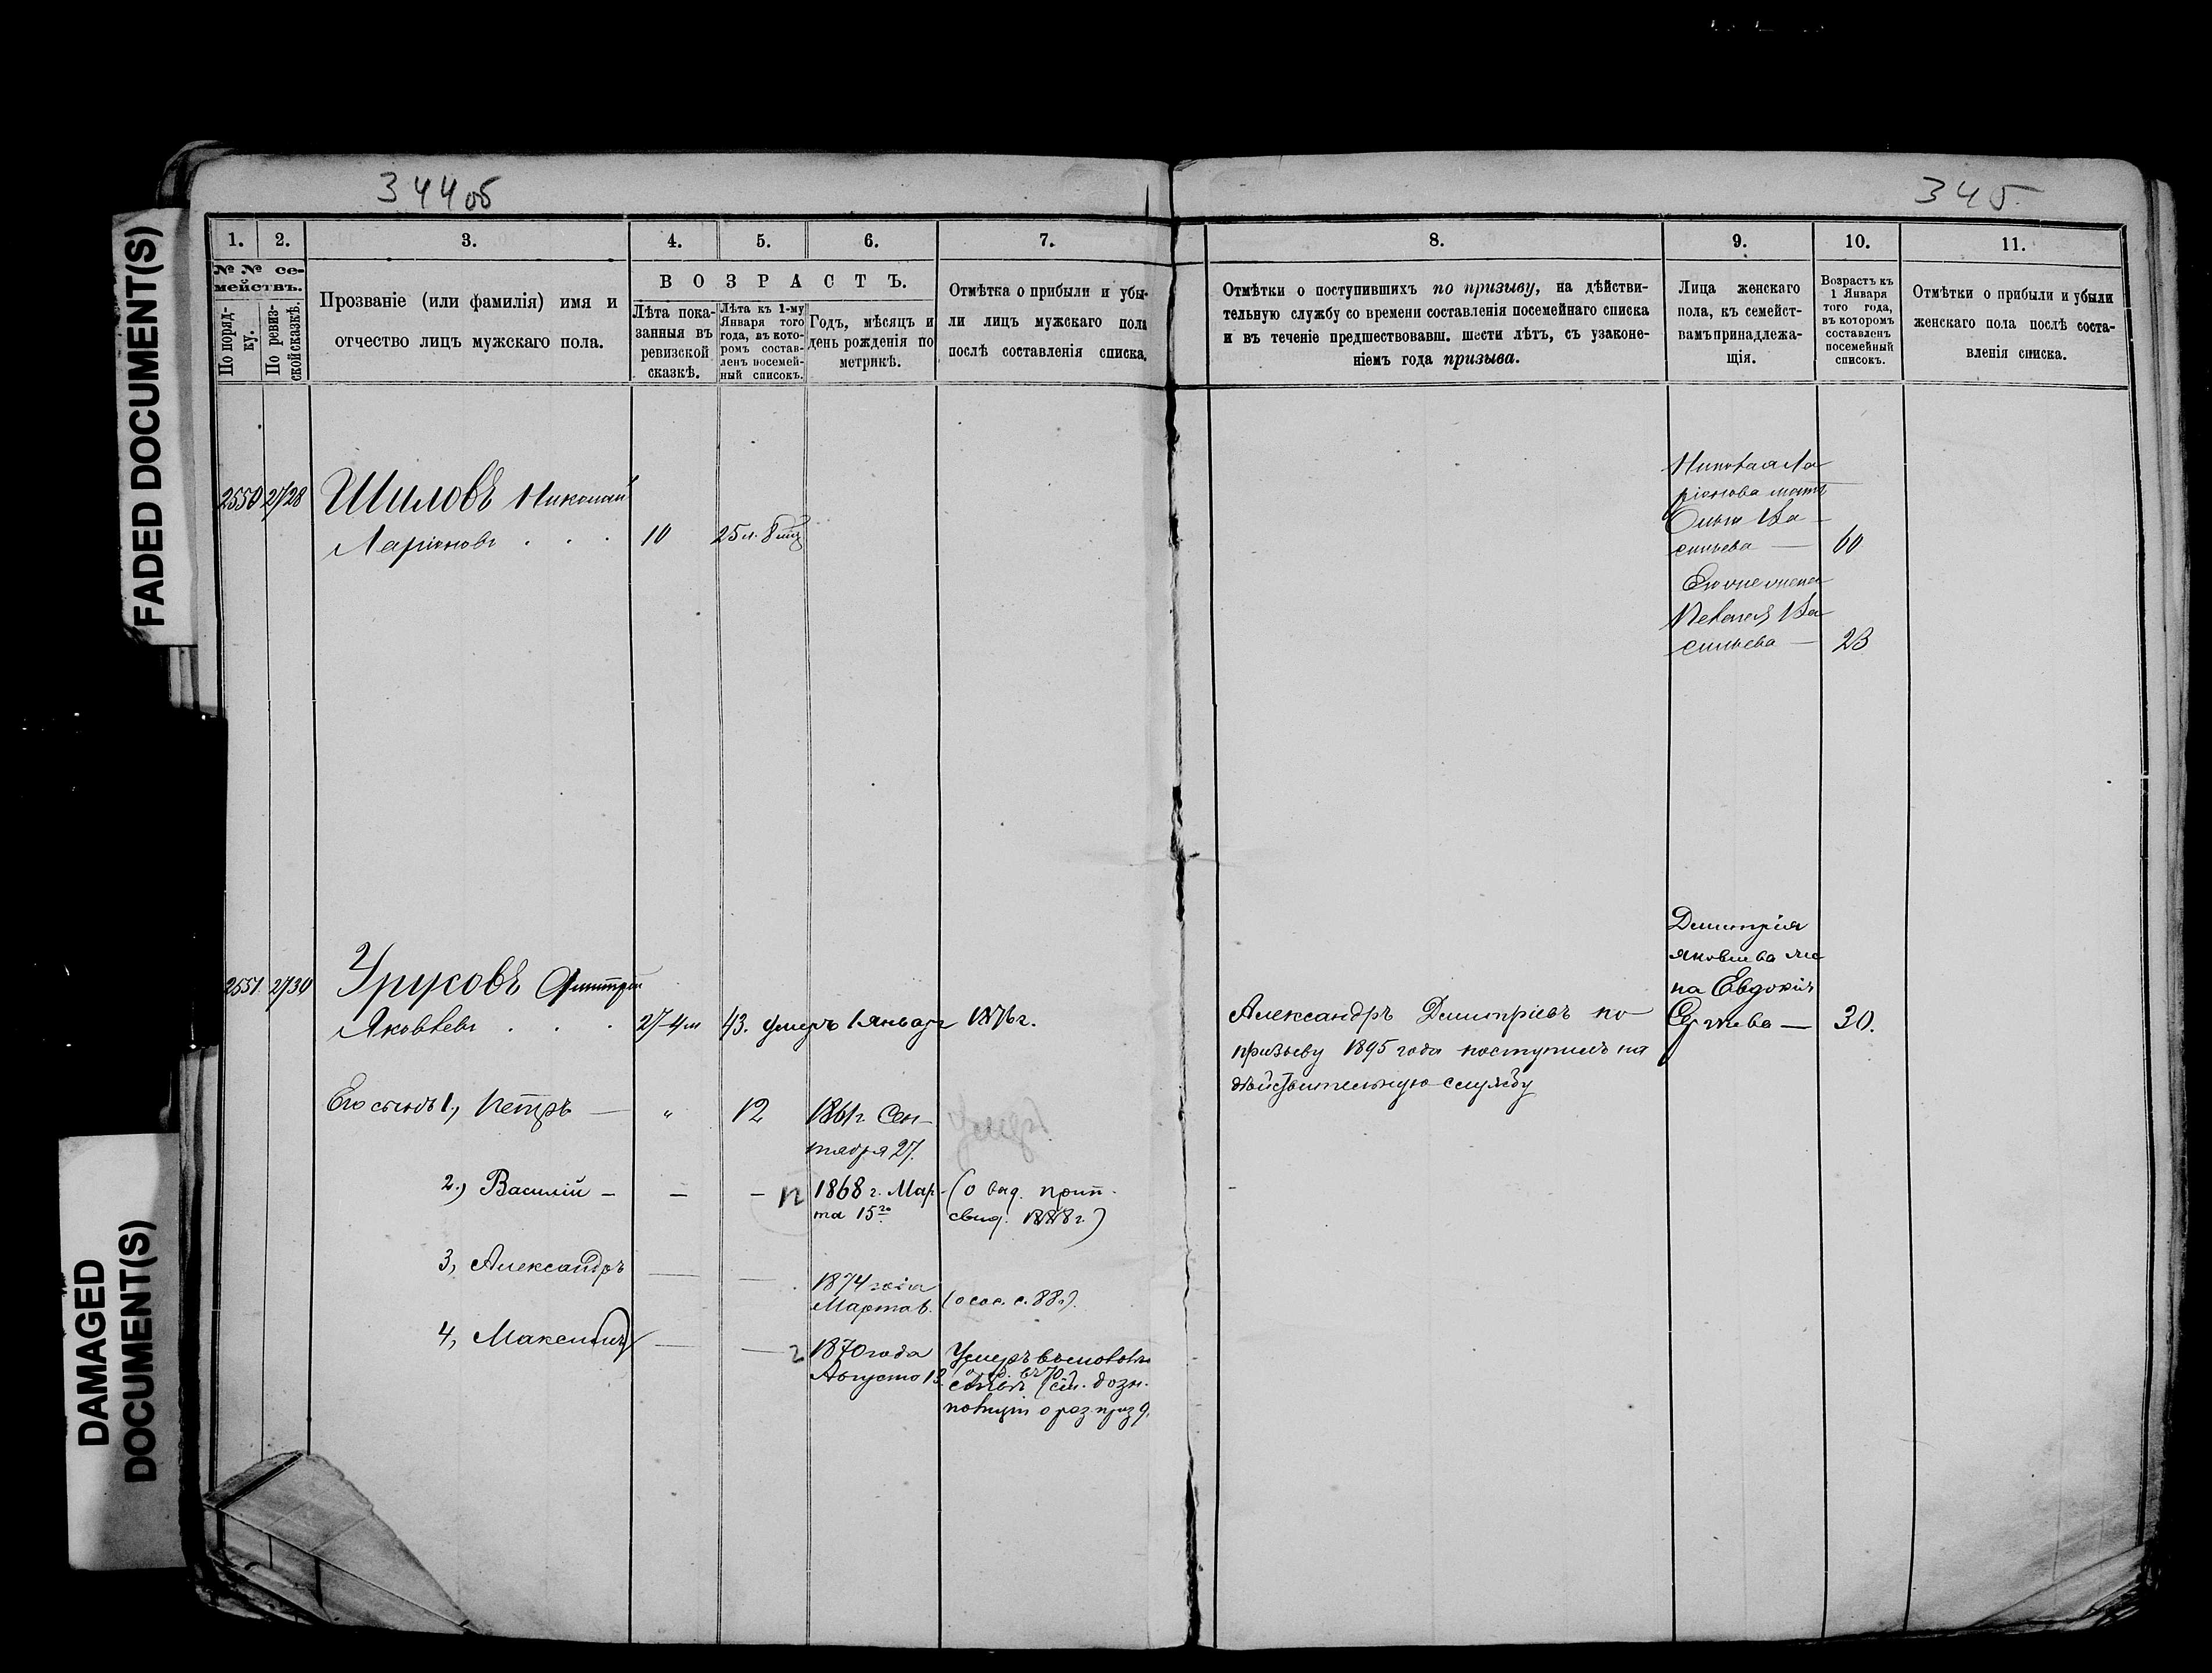 344об
345.
FADED DOCUMENT(S)
DAMAGED
DOCUMENT(S)
1.
2.
3.
4.
5.
6.
7.
8.
9.
10.
11.
№ № се-
мействъ.
По поряд-
ку.
По ревиз-
ской сказкѣ.
Прозваніе (или фамилія) имя и
отчество лицъ мужскаго пола.
ВОЗРАСТЪ.
Лѣта пока-
занныя въ
ревизской
сказкѣ.
Лѣта къ 1-му
Января того
года, въ кото-
ромъ состав-
ленъ посемей-
ный списокъ.
Годъ, мѣсяцъ и
день рожденія по
метрикѣ.
Отмѣтка о прибыли и убы-
ли лицъ мужскаго пола
послѣ составленія списка.
Отмѣтки о поступившихъ по призыву, на дѣйстви-
тельную службу со времени составленія посемейнаго списка
и въ теченіе предшествовавш. шести лѣтъ, съ узаконе-
ніемъ года призыва.
Лица женскаго
пола, къ семейст-
вамъ принадлежа-
щія.
Возрастъ къ
1 Января
того года,
въ которомъ
составленъ
посемейный
списокъ.
Отмѣтки о прибыли и убыли
женскаго пола послѣ соста-
вленія списка.
2550 2728 Шиловъ Николай
Ларіоновъ . . . 10 25 л. 8 мц
Николая Ла-
ріонова мать
Ва-
сильева — 60
жена
Ва-
сильева — 23
2551 2730 Димитрій
Яковлевъ . . . 27-4м 43. умеръ 1 января 1876 г.
Димитрія
Яковлева же-
на Евдокія
Сергѣева — 30.
Александръ Димитріевъ по
призыву 1895 года поступилъ на
дѣйствительную службу
Его сынъ 1, Петръ — " 12 1861 г. Сен-
тября 27.
умеръ
2., Василій — — — 1868 г. Мар-
та 15го
(о выд. прип.
свид. 1888 г.)
3, Александръ — — 1874 года
Марта 6.
4, Максимъ — — 2 1870 года
Августа 13.
Умеръ